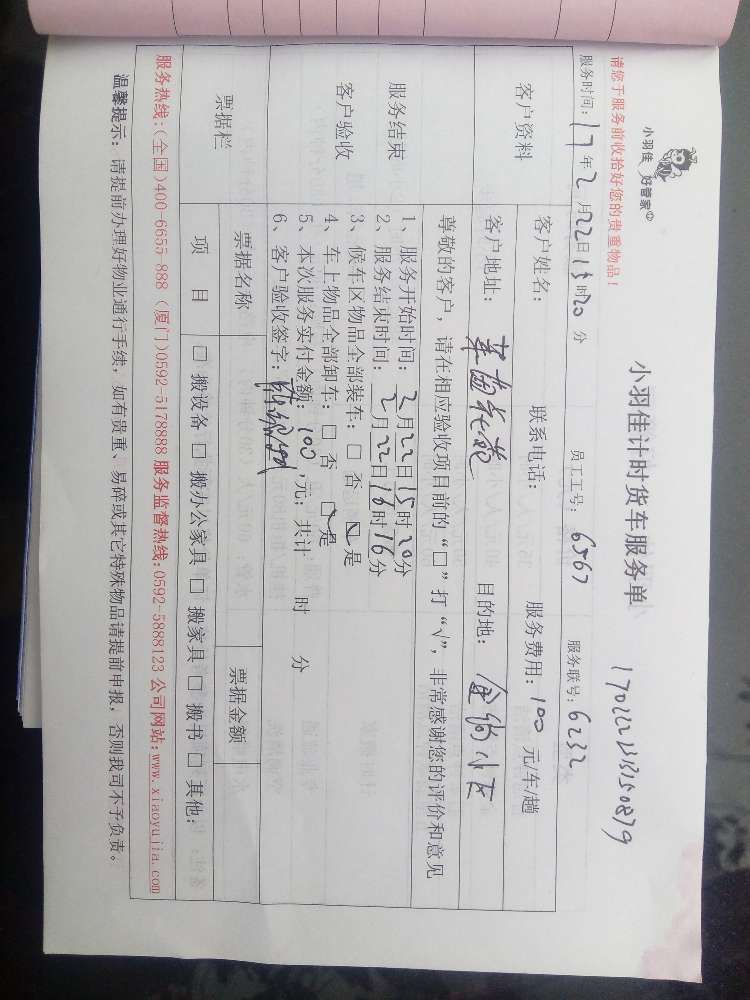 小羽佳 好管家
小羽佳计时货车服务单
请您于服务前收拾好您的贵重物品！
服务时间：17年2月22日15时20分 员工工号：6567 服务联号：6232
客户资料
客户姓名： 联系电话： 服务费用：100元/车/趟
客户地址： 目的地：
尊敬的客户，请在相应验收项目前的“□”打“√”，非常感谢您的评价和意见
服务结束
客户验收
1、服务开始时间：2月22日15时20分
2、服务结束时间：2月22日16时16分
3、候车区物品全部装车：□ 否 ☑ 是
4、车上物品全部卸车：□ 否 ☑ 是
5、本次服务实付金额：100，元；共计 时 分
6、客户验收签字：
票据栏
票据名称 票据金额
项 目 □ 搬设备 □ 搬办公家具 □ 搬家具 □ 搬书 □ 其他：
服务热线：(全国)400-6655-888 (厦门)0592-5178888 服务监督热线：0592-5888123 公司网站：www.xiaoyujia.com
温馨提示：请提前办理好物业通行手续，如有贵重、易碎或其它特殊物品请提前申报，否则我司不予负责。